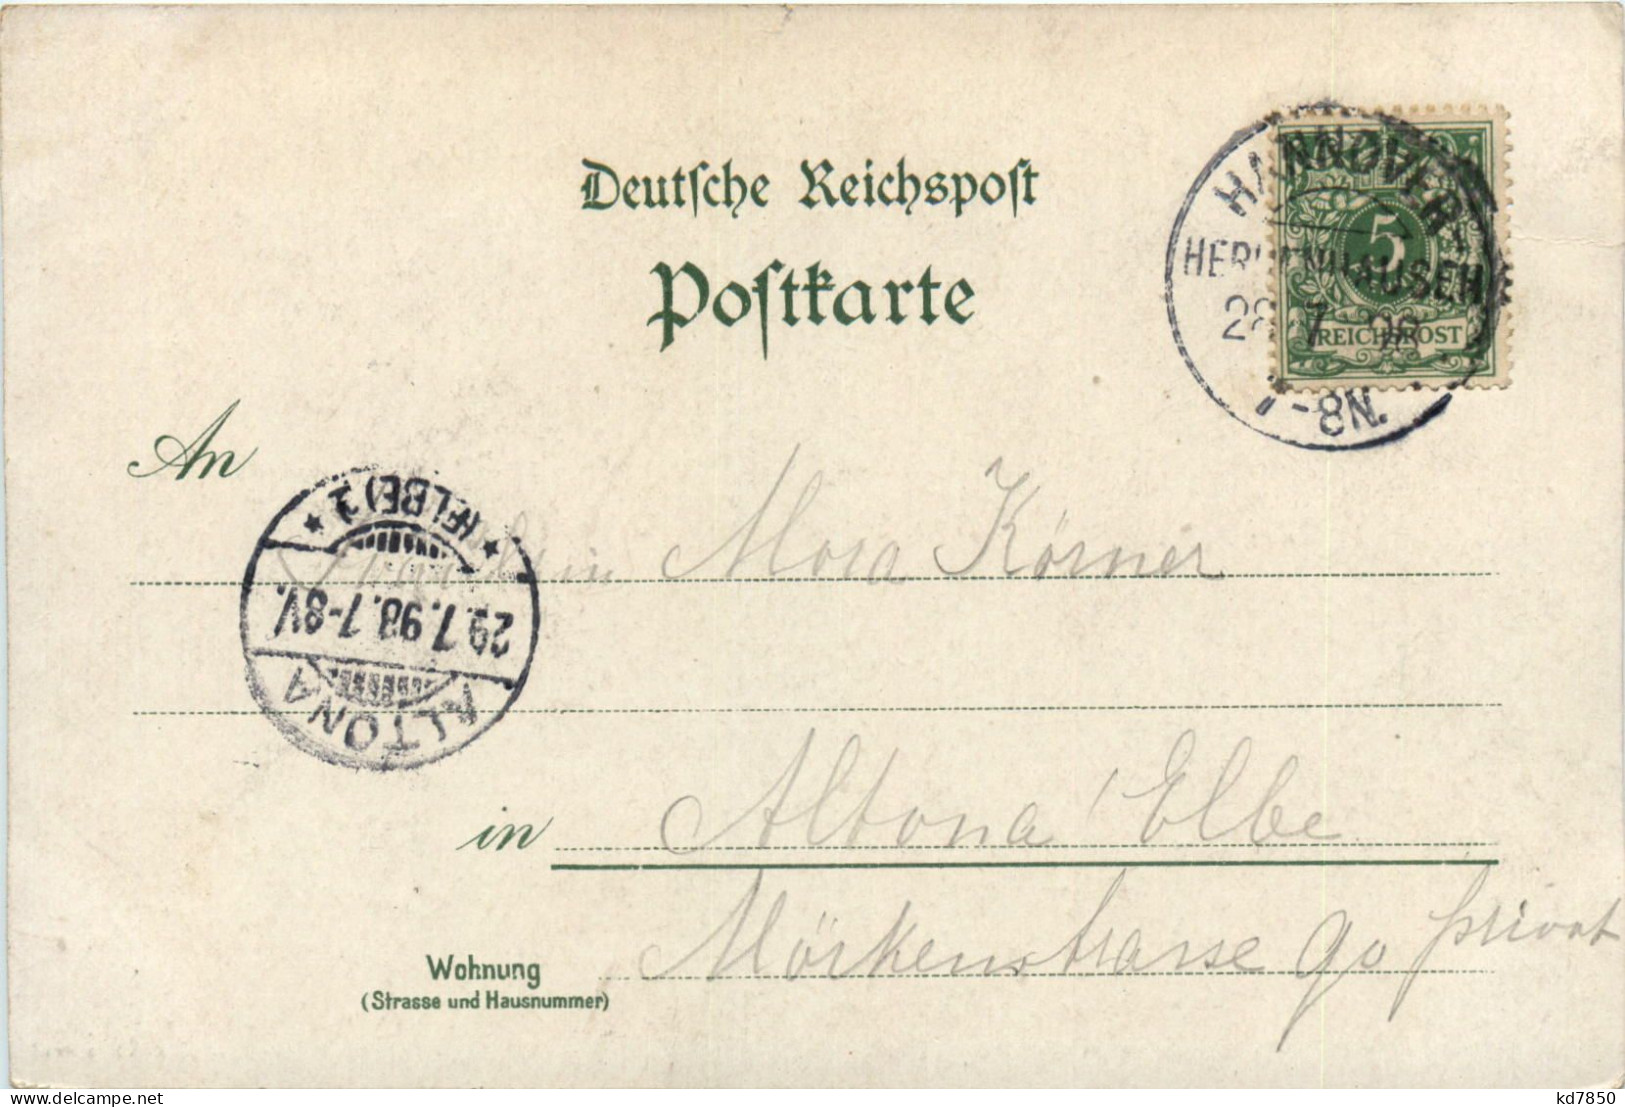 Deutsche Reichspost
Postkarte
HANNOVER-
HERRENHAUSEN
28.7.98
7-8N.
5
REICHSPOST
An
Fräulein Mora Körner
ALTONA
29.7.98.7-8V.
* (ELBE) 1 *
in Altona / Elbe
Wohnung
(Strasse und Hausnummer)
Mörkenstrasse 90 privat
delcampe.net
kd7850